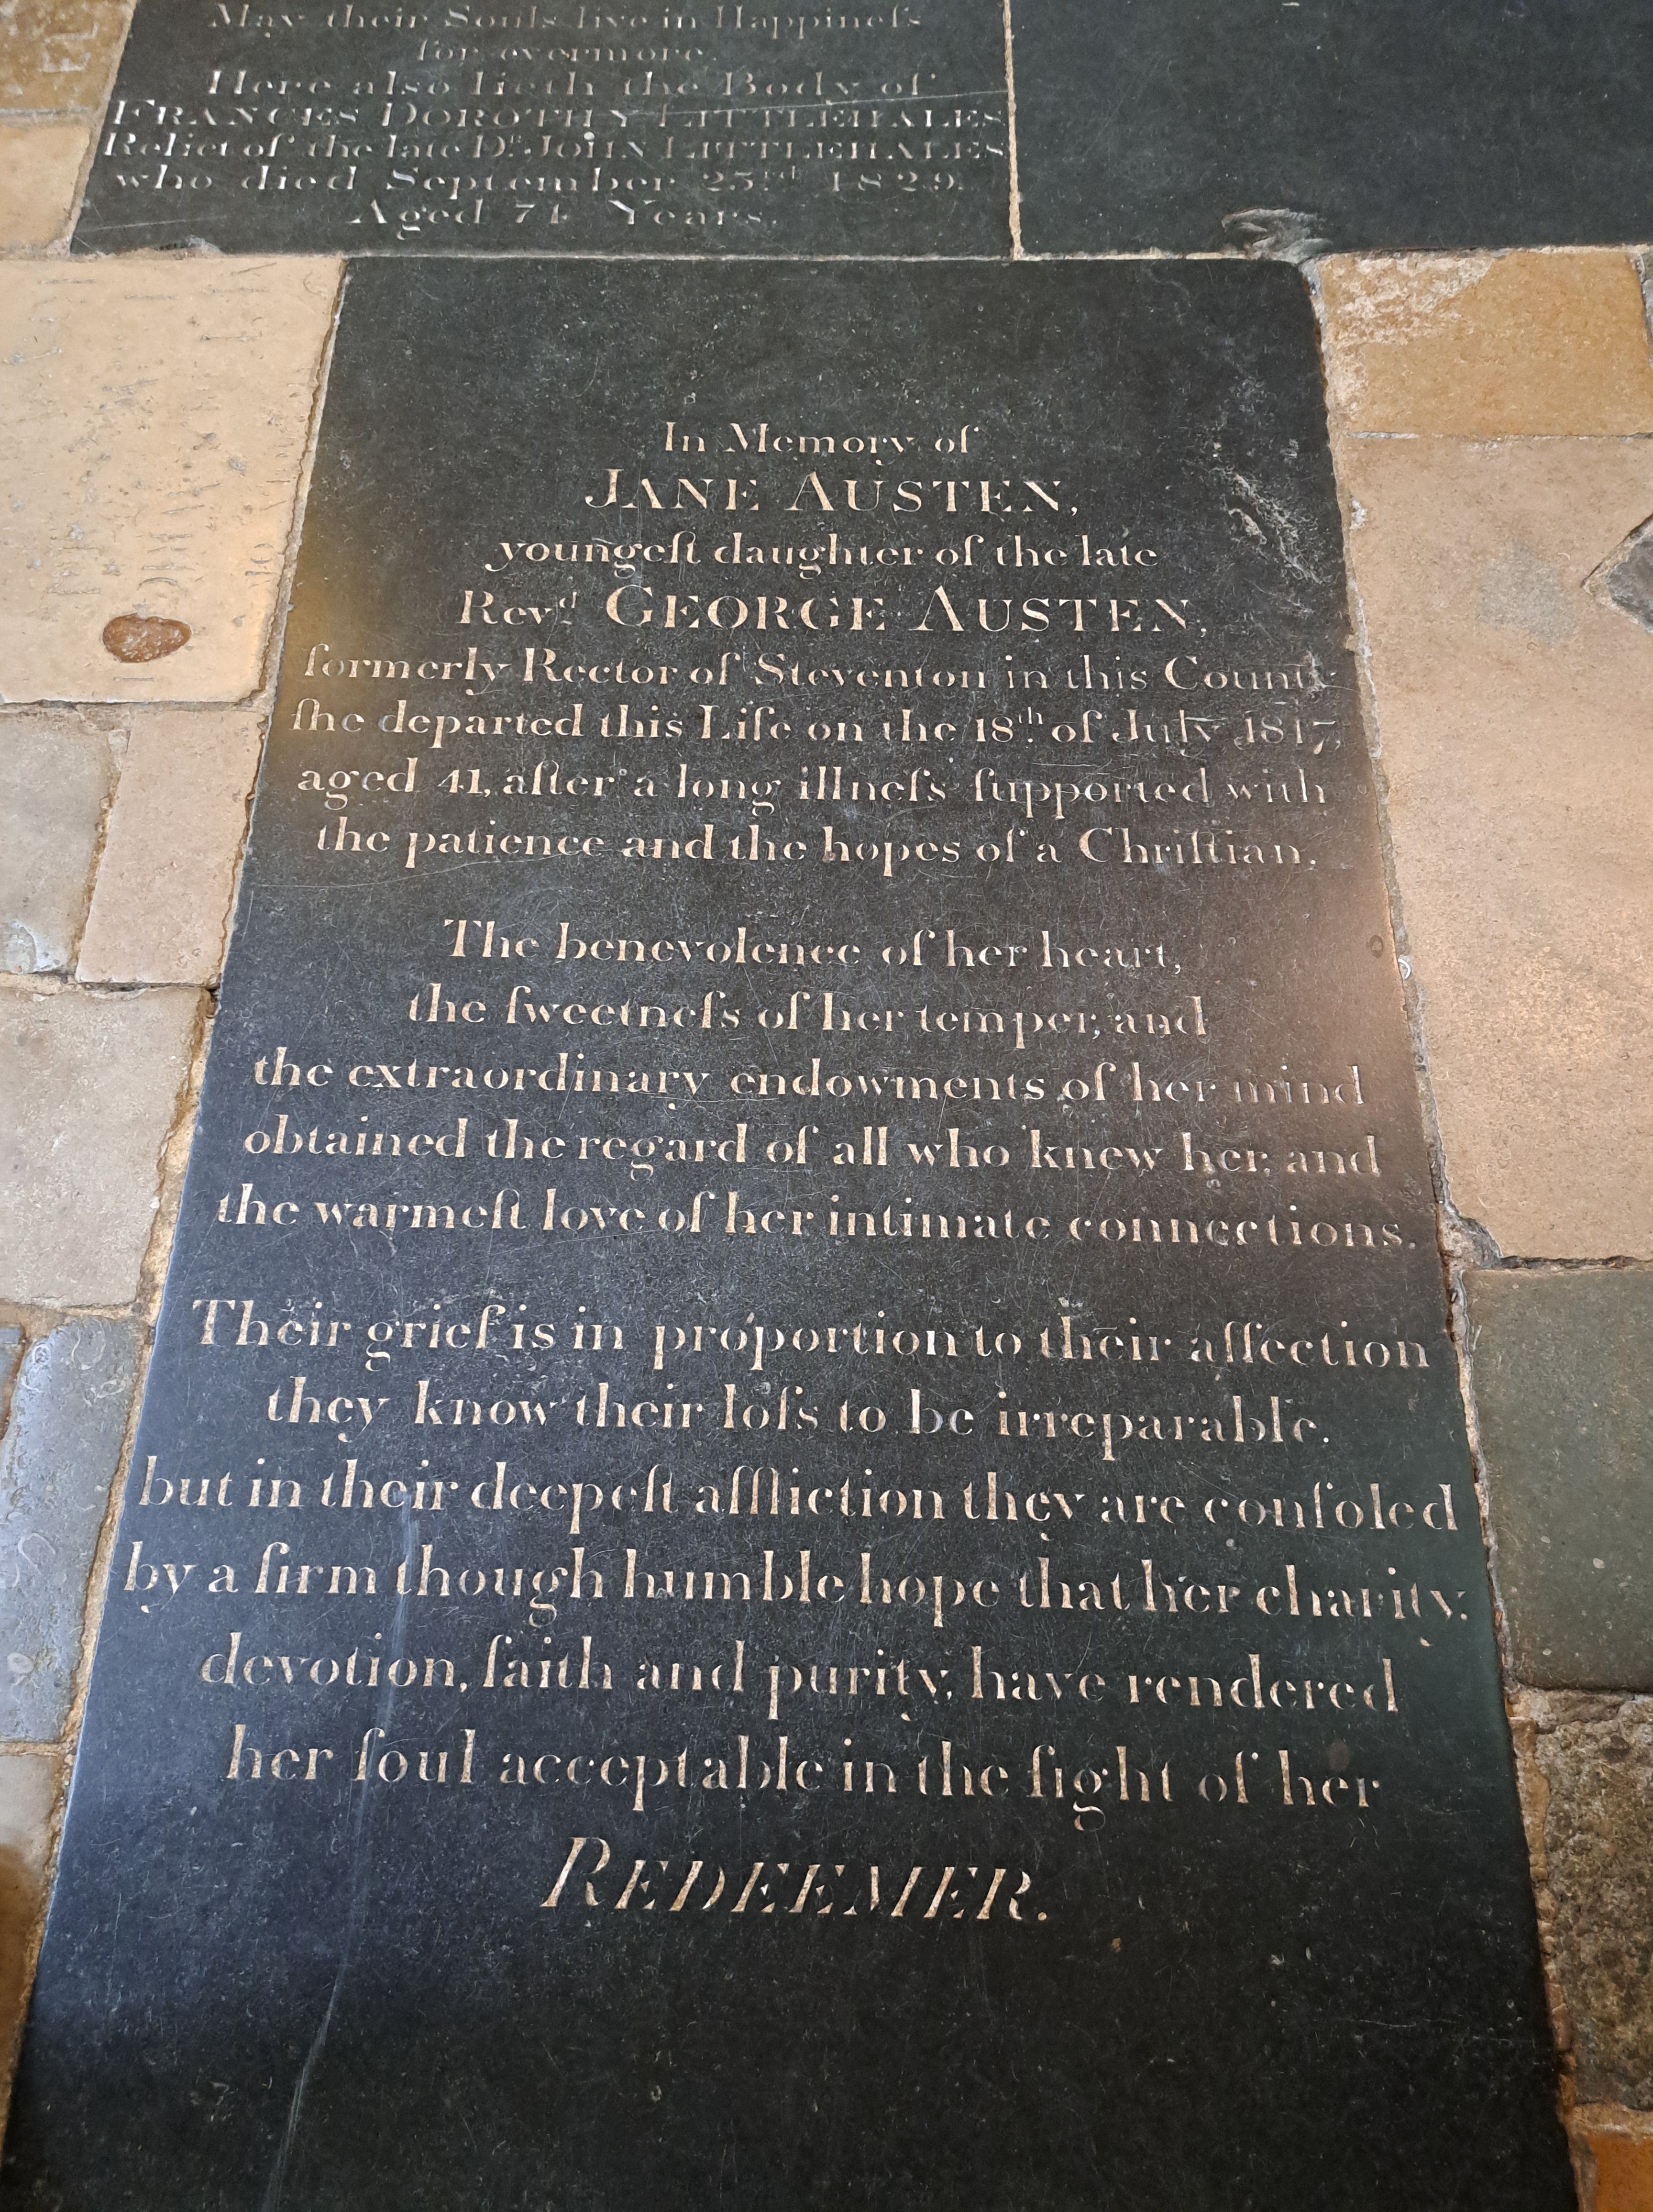 May their Souls live in Happineſs
for evermore.
Here also lieth the Body of
FRANCES DOROTHY LITTLEHALES
Relict of the late Dr. JOHN LITTLEHALES
who died September 23rd 1829.
Aged 74 Years.
In Memory of
JANE AUSTEN,
youngeſt daughter of the late
Revd. GEORGE AUSTEN,
formerly Rector of Steventon in this County
ſhe departed this Life on the 18th. of July 1817,
aged 41, after a long illneſs ſupported with
the patience and the hopes of a Chriſtian.
The benevolence of her heart,
the ſweetneſs of her temper, and
the extraordinary endowments of her mind
obtained the regard of all who knew her, and
the warmeſt love of her intimate connections.
Their grief is in proportion to their affection
they know their loſs to be irreparable.
but in their deepeſt affliction they are conſoled
by a firm though humble hope that her charity,
devotion, faith and purity, have rendered
her ſoul acceptable in the ſight of her
REDEEMER.